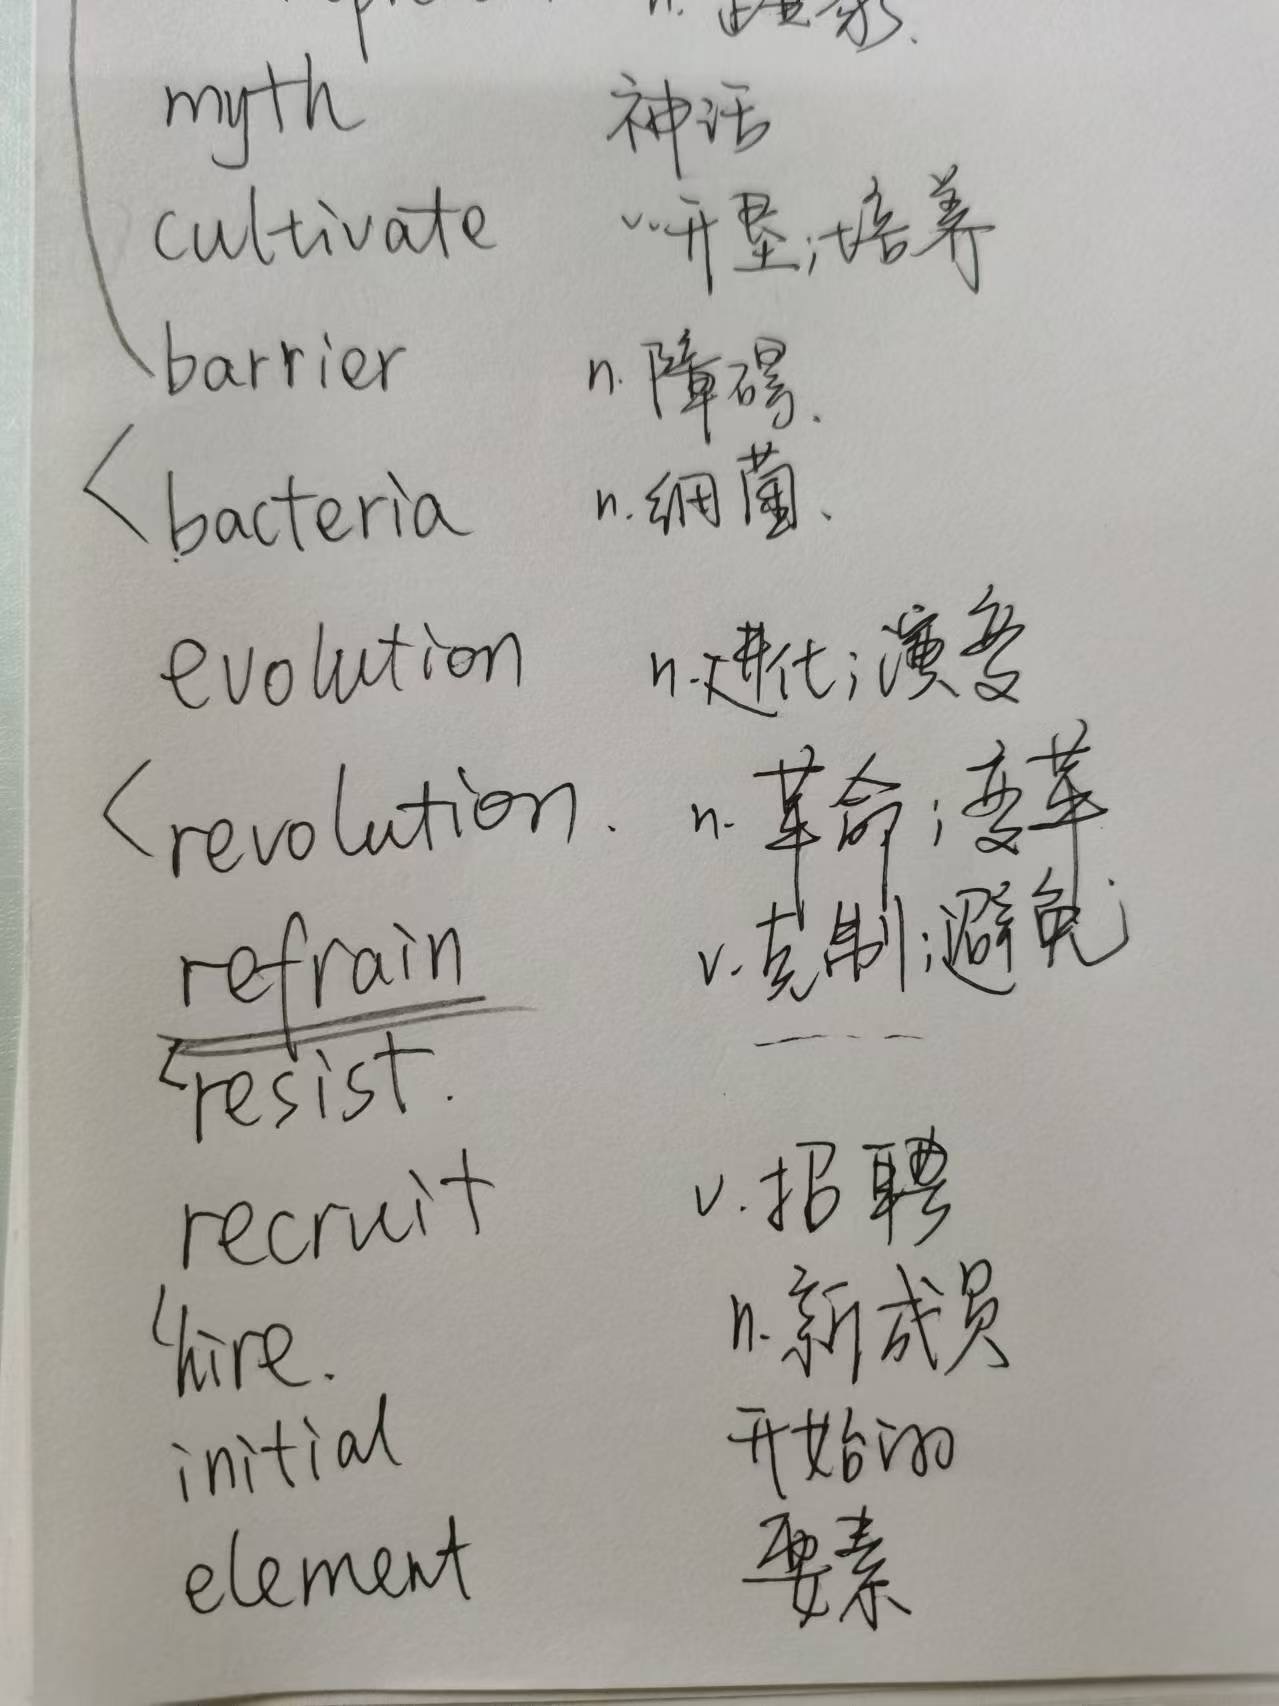 n.
myth 神话
cultivate v. 开垦;培养
barrier n. 障碍.
bacteria n. 细菌.
evolution n. 进化;演变
revolution. n. 革命;变革
refrain v. 克制;避免
resist.
recruit v. 招聘
hire. n. 新成员
initial 开始的
element 要素